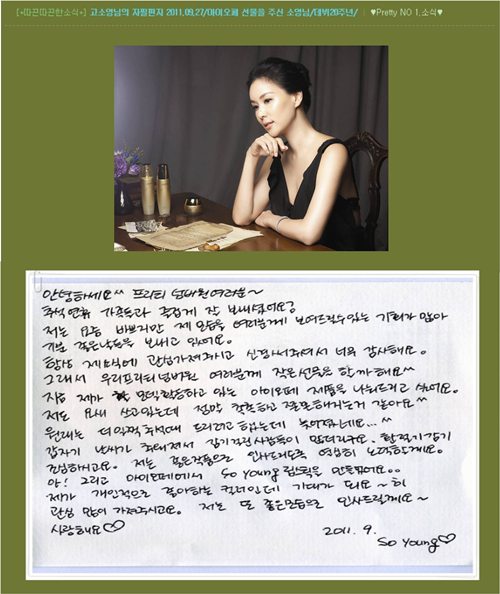 [+따끈따끈한소식+] 고소영님의 자필편지 2011.09.27/아이오페 선물을 주신 소영님/데뷔20주년/ | ♥Pretty NO 1.소식♥
안녕하세요^^ 프리티 넘버원 여러분~
추석연휴 가족들과 즐겁게 잘 보내셨어요?
저는 요즘 바쁘지만 제 모습을 여러분께 보여드릴수있는 기회가 많아
기분 좋은날들을 보내고 있어요.
항상 제 소식에 관심가져주시고 신경써주셔서 너무 감사해요.
그래서 우리 프리티넘버원 여러분께 작은선물을 할까해요^^
지금 제가 모델활동하고 있는 아이오페 제품을 나눠드리고 싶어요.
저도 요새 쓰고있는데 정말 촉촉하고 잘스며드는거 같아요^^
원래는 더 일찍 추석때 드리려고 했는데 늦어졌네요...^^
갑자기 날씨가 추워져서 감기걸린사람들이 많더라구요. 환절기감기
조심하시고요. 저는 좋은작품으로 인사드리도록 열심히 노력할게요.
아! 그리고 아이오페에서 So Young립스틱을 만들었어요..
제가 개인적으로 좋아하는 컬러인데 기대가 되요~ 히
관심 많이 가져주시고요. 저는 또 좋은모습으로 인사드릴께요~
사랑해요♡
2011. 9.
So Young♡